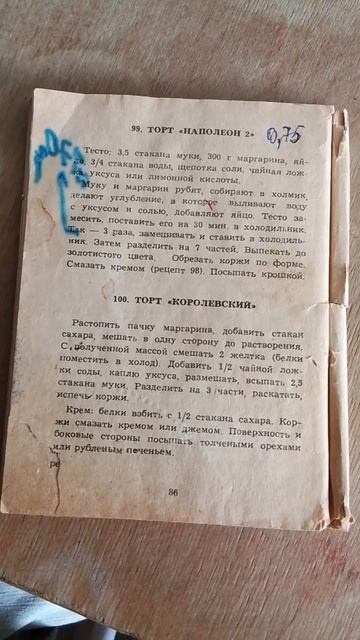 99. ТОРТ «НАПОЛЕОН 2»
0,75
Тесто: 3,5 стакана муки, 300 г маргарина, яй-
цо, 3/4 стакана воды, щепотка соли, чайная лож-
ка уксуса или лимонной кислоты.
Муку и маргарин рубят, собирают в холмик,
делают углубление, в которое выливают воду
с уксусом и солью, добавляют яйцо. Тесто за-
месить, поставить его на 30 мин. в холодильник.
Так — 3 раза, замешивать и ставить в холодиль-
ник. Затем разделить на 7 частей. Выпекать до
золотистого цвета. Обрезать коржи по форме.
Смазать кремом (рецепт 98). Посыпать крошкой.
100. ТОРТ «КОРОЛЕВСКИЙ»
Растопить пачку маргарина, добавить стакан
сахара, мешать в одну сторону до растворения.
С полученной массой смешать 2 желтка (белки
поместить в холод). Добавить 1/2 чайной лож-
ки соды, каплю уксуса, размешать, всыпать 2,5
стакана муки. Разделить на 3 части, раскатать,
испечь коржи.
Крем: белки взбить с 1/2 стакана сахара. Кор-
жи смазать кремом или джемом. Поверхность и
боковые стороны посыпать толчеными орехами
или рубленым печеньем.
ре
86